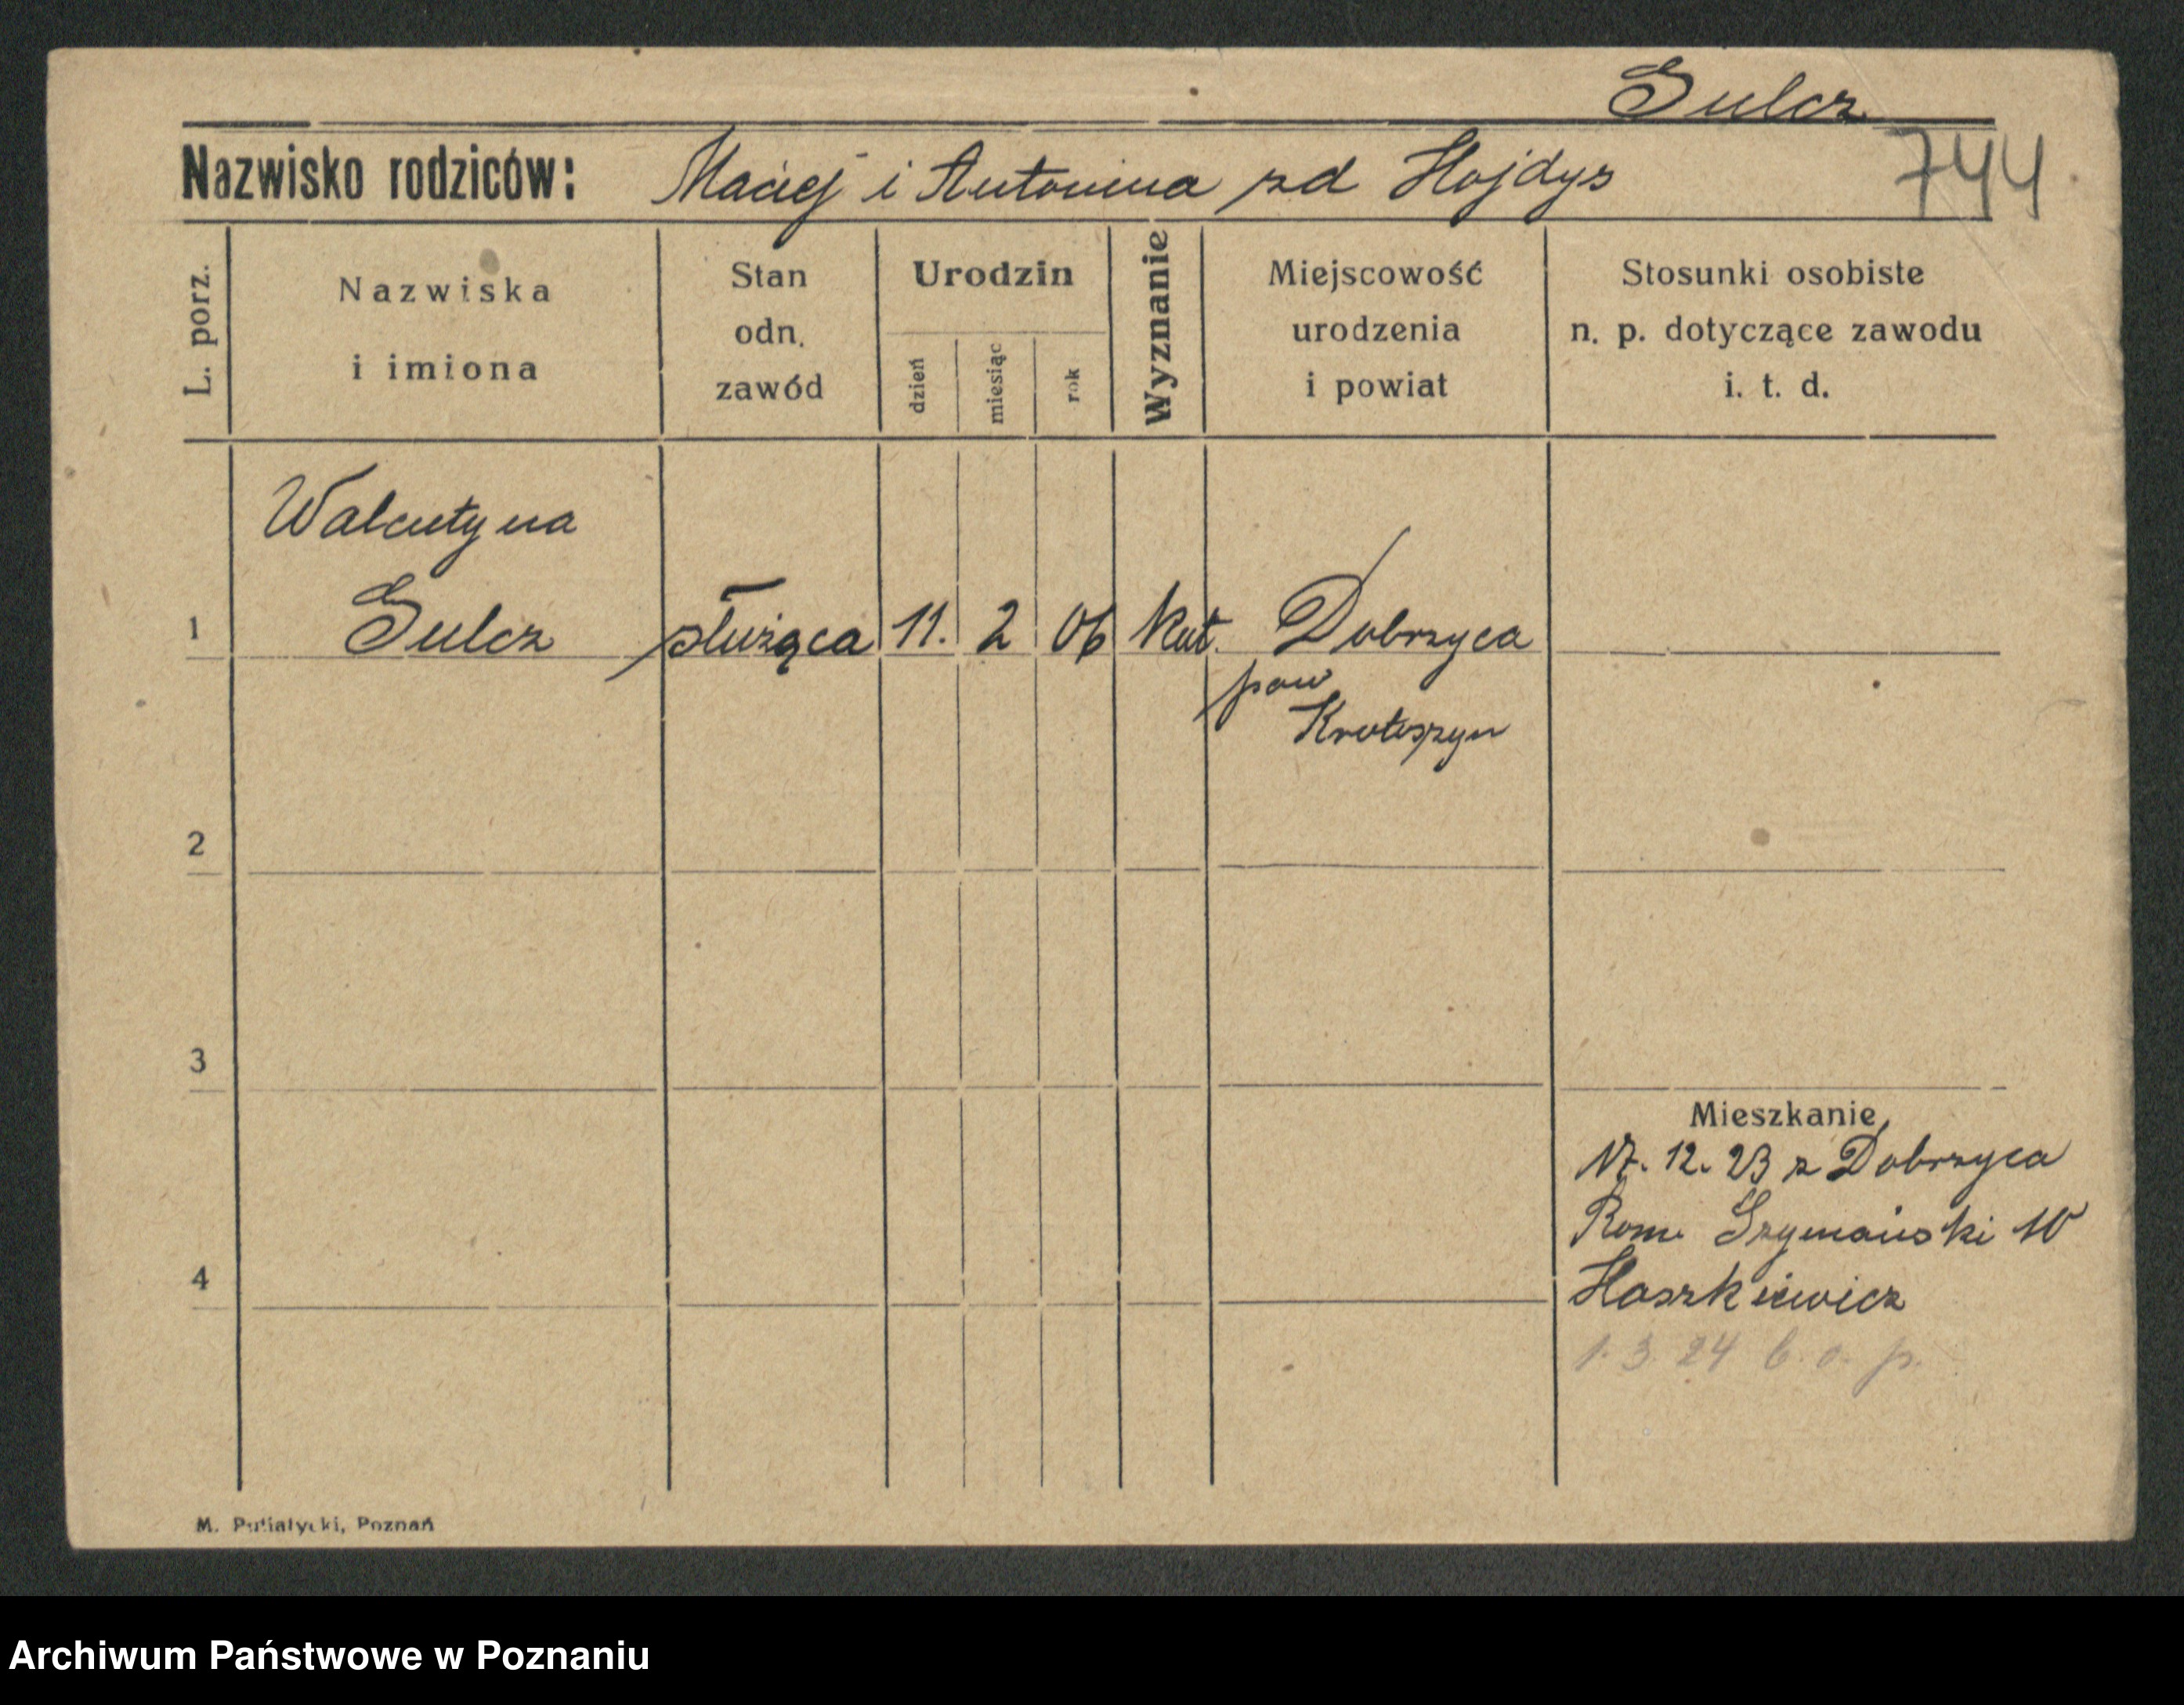 Gulcz
Nazwisko rodziców: Maciej i Antonina zd Hojdys
744
L. porz.
Nazwiska
i imiona
Stan
odn.
zawód
Urodzin
dzień
miesiąc
rok
Wyznanie
Miejscowość
urodzenia
i powiat
Stosunki osobiste
n. p. dotyczące zawodu
i. t. d.
Walentyna
1 Gulcz służąca 11. 2 06 kat. Dobrzyca
pow
Krotoszyn
2
3
Mieszkanie
17. 12. 23 z Dobrzyca
Rom. Szymański 10
4
Haszkiewicz
1. 3. 24 b. o. p.
M. Putiatycki, Poznań
Archiwum Państwowe w Poznaniu